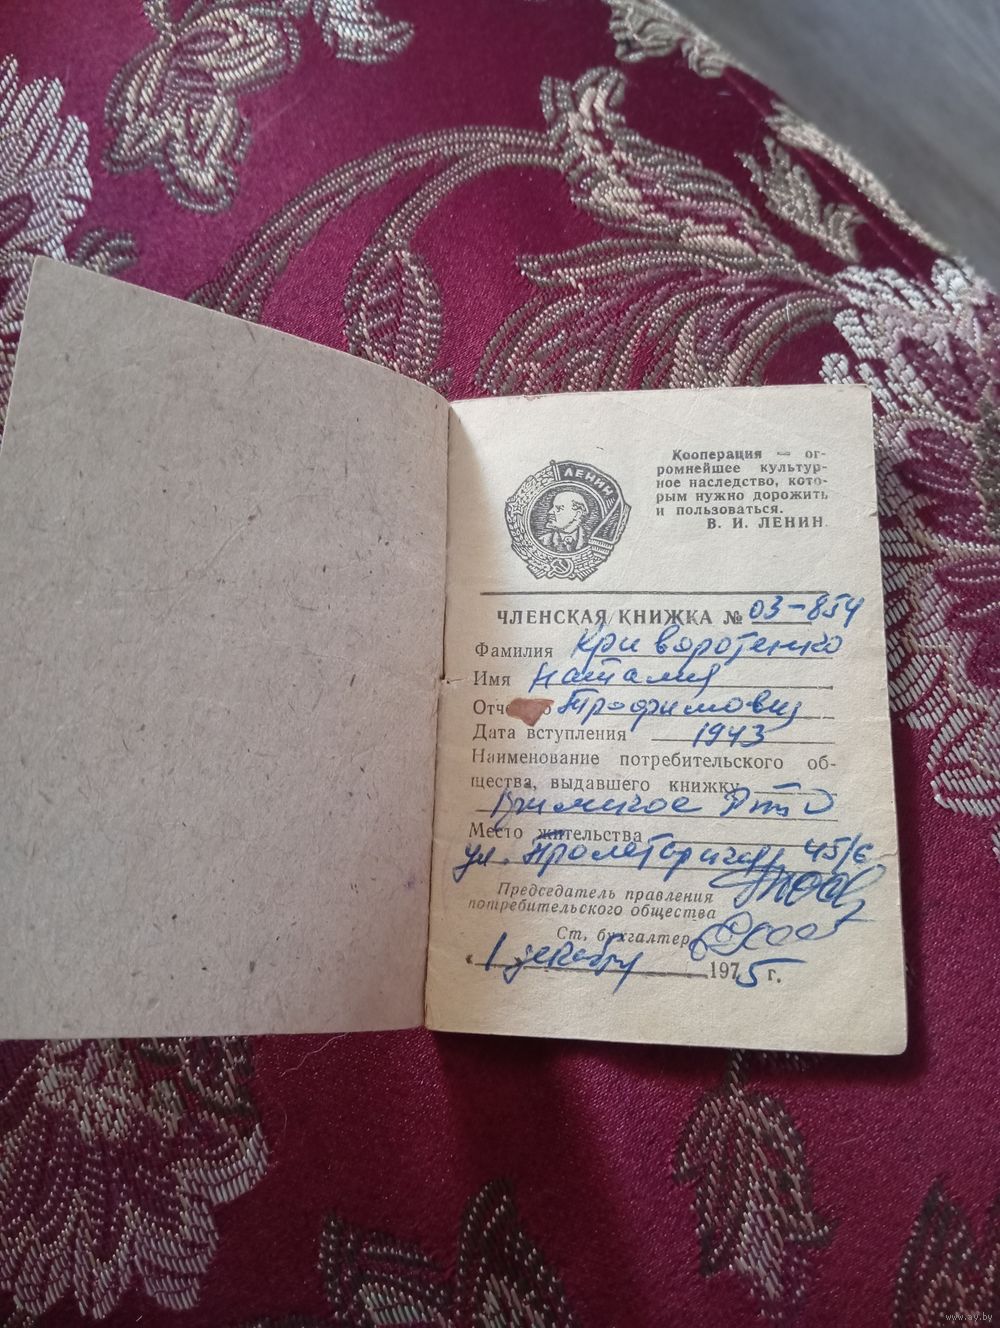 ЛЕНИН
Кооперация — ог-
ромнейшее культур-
ное наследство, кото-
рым нужно дорожить
и пользоваться.
В. И. ЛЕНИН.
ЧЛЕНСКАЯ КНИЖКА № 03-854
Фамилия Криворотенко
Имя Наталия
Трофимовна
Дата вступления 1943
Наименование потребительского об-
щества, выдавшего книжку
Место жительства
ул. Пролетарская 45/6
Председатель правления
потребительского общества
Ст. бухгалтер
1 декабря 1975 г.
www.ay.by